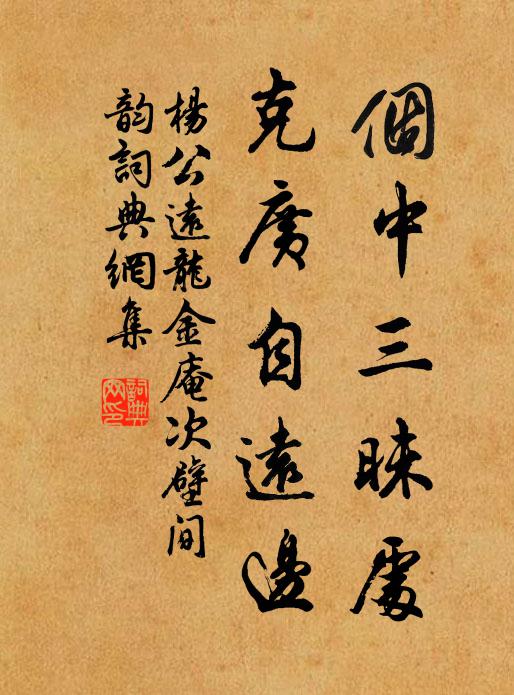 個中三昧處
克廣自遠邊
楊公遠龍金庵次壁间
韵詞典網集
詞典
网印